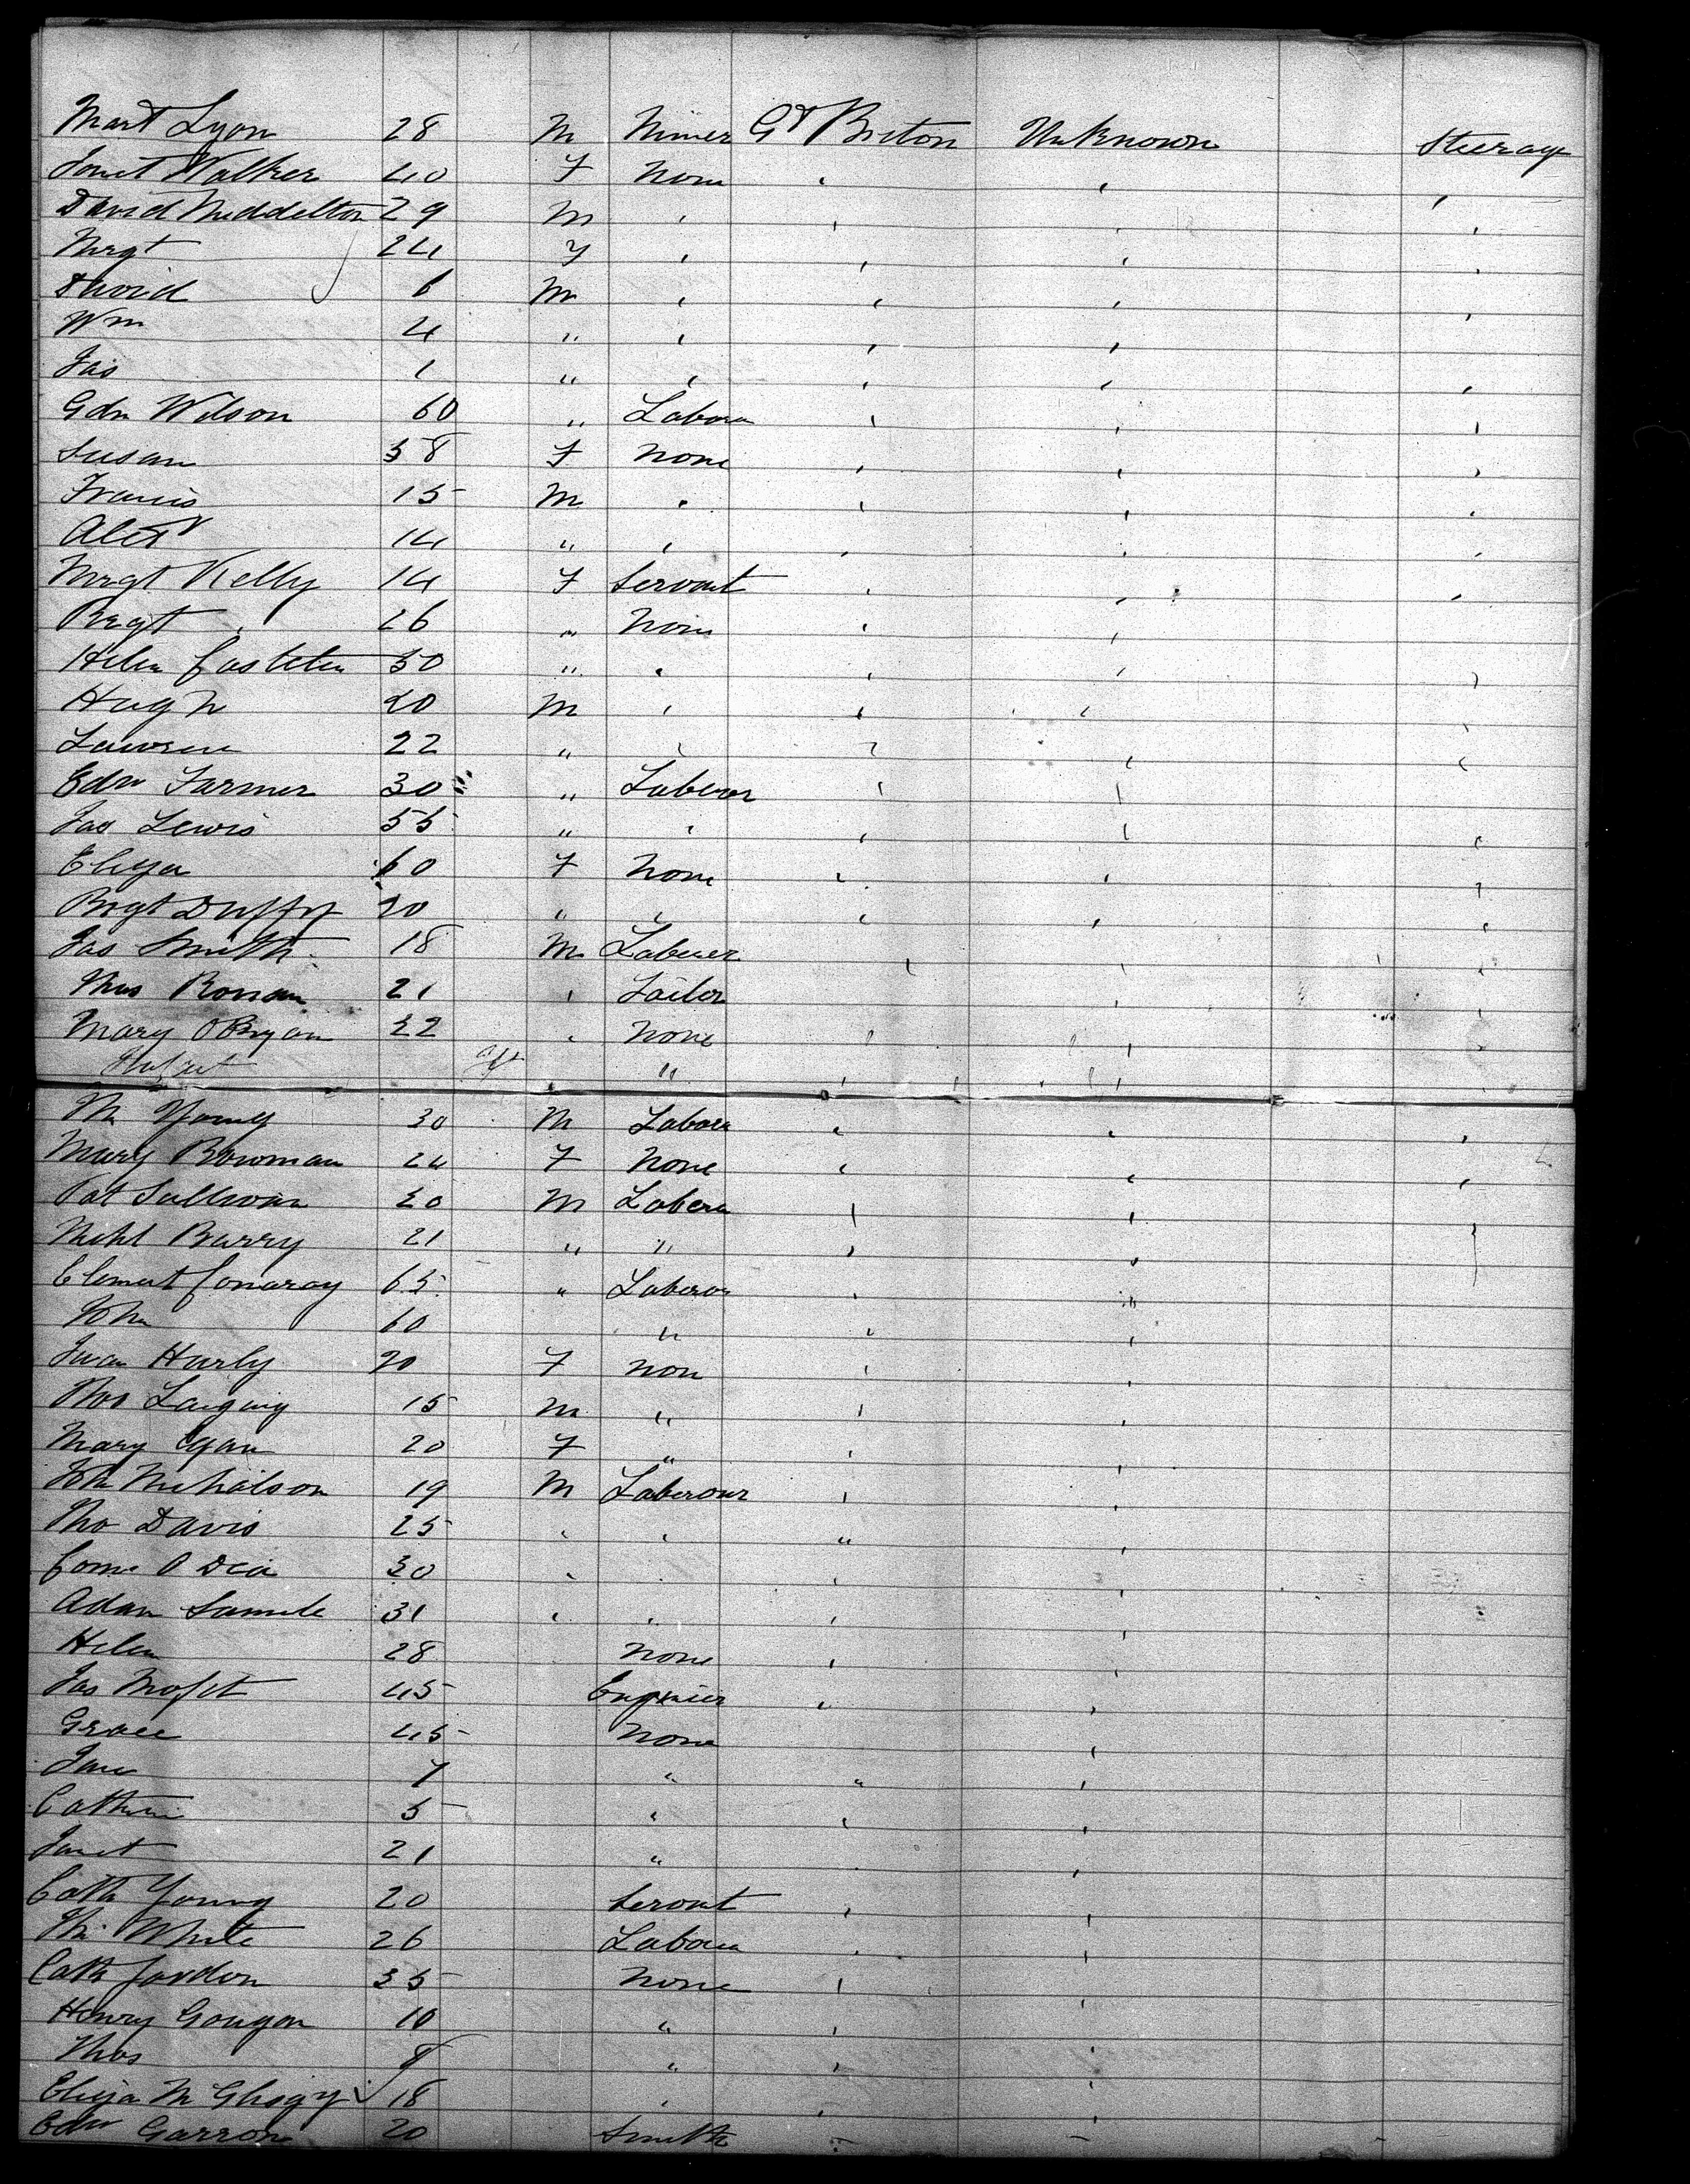 Mart Lyon 28 M Miner Gt Briton Unknown Steerage
Janet Walker 40 F None , , ,
David Middelton 29 M , , , ,
Mrgt 24 F , , , ,
David 6 M , , , ,
Wm 4 " , , ,
Jas 1 " , , , ,
Edw Wilson 60 " Labour , , ,
Susan 58 F None , , ,
Francis 15 M , , , ,
Alexr 14 " , , , ,
Mrgt Kelly 14 F Servant , , ,
Brgt , 26 " None , ,
Helen Castelen 50 " , , , ,
Hugh 20 M , , , ,
Lawren 22 " , , , ,
Edw Farmer 30 " Labour , ,
Jas Lewis 55 " , , , ,
Eliza 60 F None , , ,
Brgt Duffy 20 " , , , ,
Jas Smith 18 M Laberer , , ,
Thos Ronan 21 , Tailor , ,
Mary O Bryan 32 , None , ,
Infant " , ,
M Young 30 M Labour , , ,
Mary Bowman 24 F None , , ,
Pat Sullivan 20 M Laber , ,
Michl Barry 21 " " , ,
Clement Conaray 65 " Labour , "
John 60 " , ,
Hurly 20 F Non , ,
Thos 15 M " , ,
Mary Egan 20 F " , ,
John Nicholson 19 M Laberour , ,
Tho Davis 25 , , " ,
O Dea 30 , , , ,
Adam Samule 31 , , , ,
Helen 28 None , ,
Jas Mofet 45 Engnier , ,
Grace 45 None ,
Jane 7 " " ,
Cathrin 5 , , ,
Janet 21 " ,
Cath Young 20 Servnt , ,
White 26 Labour , ,
Cath Jordon 35 None , ,
Henry Gougon 10 " , ,
Thos 8 " , ,
Eliza 18 , , ,
Edw Garron 20 Smith